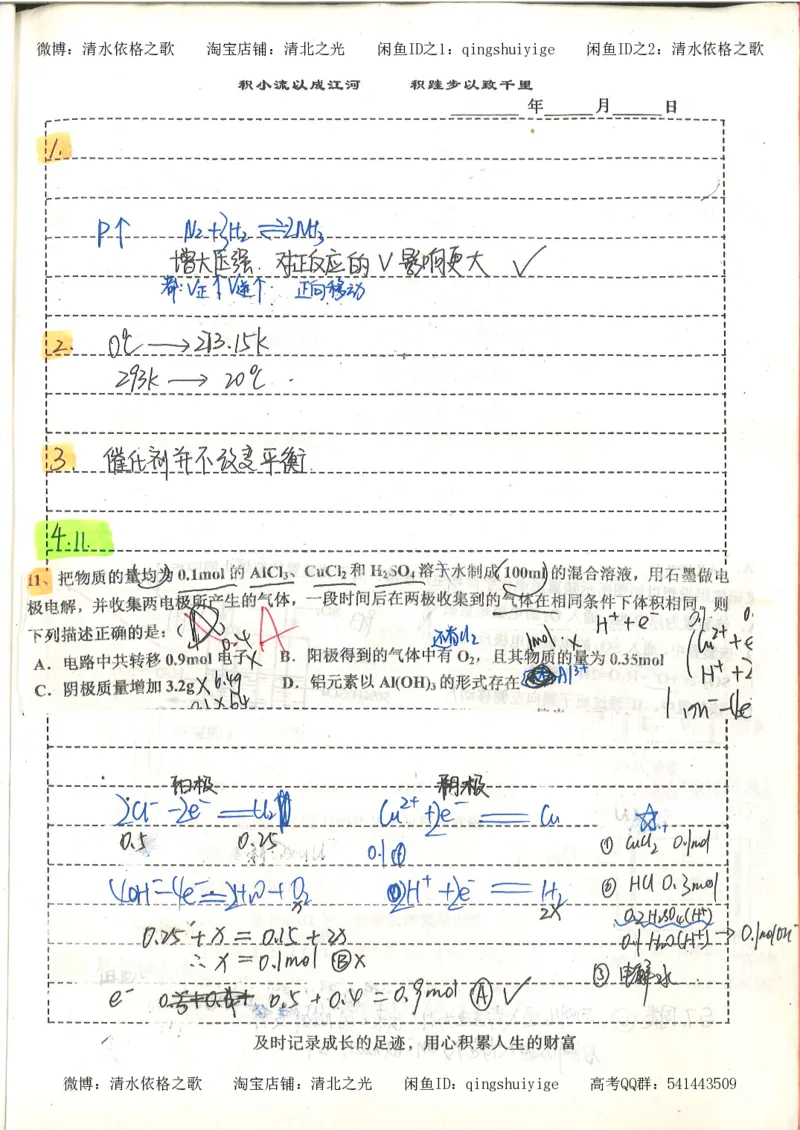 微博：清水依格之歌 淘宝店铺：清北之光 闲鱼ID之1：qingshuiyige 闲鱼ID之2：清水依格之歌
积小流以成江河 积跬步以致千里
年 月 日
1.
P↑ N₂+3H₂⇌2NH₃
增大压强.对正反应的V影响更大 ✓
都:V正↑V逆↑ 正向移动
2. 0℃→273.15K
293K→20℃.
3. 催化剂并不改变平衡.
4.11.
11、把物质的量均为0.1mol的AlCl₃、CuCl₂和H₂SO₄溶于水制成100ml的混合溶液，用石墨做电
极电解，并收集两电极所产生的气体，一段时间后在两极收集到的气体在相同条件下体积相同。则
下列描述正确的是：( D A
H⁺+e⁻
0.4 还有Cl₂ 1mol·x
A．电路中共转移0.9mol电子 B．阳极得到的气体中有O₂，且其物质的量为0.35mol
C．阴极质量增加3.2g × 6.4g D．铝元素以Al(OH)₃的形式存在 Al³⁺
0.1×64
阳极 阴极
2Cl⁻-2e⁻=Cl₂↑ Cu²⁺+2e⁻=Cu
0.5 0.25 0.1 ① CuCl₂ 0.1mol
4OH⁻-4e⁻=2H₂O+O₂ 2H⁺+2e⁻=H₂ ② HCl 0.3mol
x 2x 0.2H₂SO₄(H⁺)
0.25+x=0.15+2x 0.1H₂O(H⁺)→0.1molOH⁻
∴x=0.1mol Ⓑ×
③ 电解水
e⁻ 0.5+0.4=0.9mol Ⓐ✓
及时记录成长的足迹，用心积累人生的财富
微博：清水依格之歌 淘宝店铺：清北之光 闲鱼ID：qingshuiyige 高考QQ群：541443509